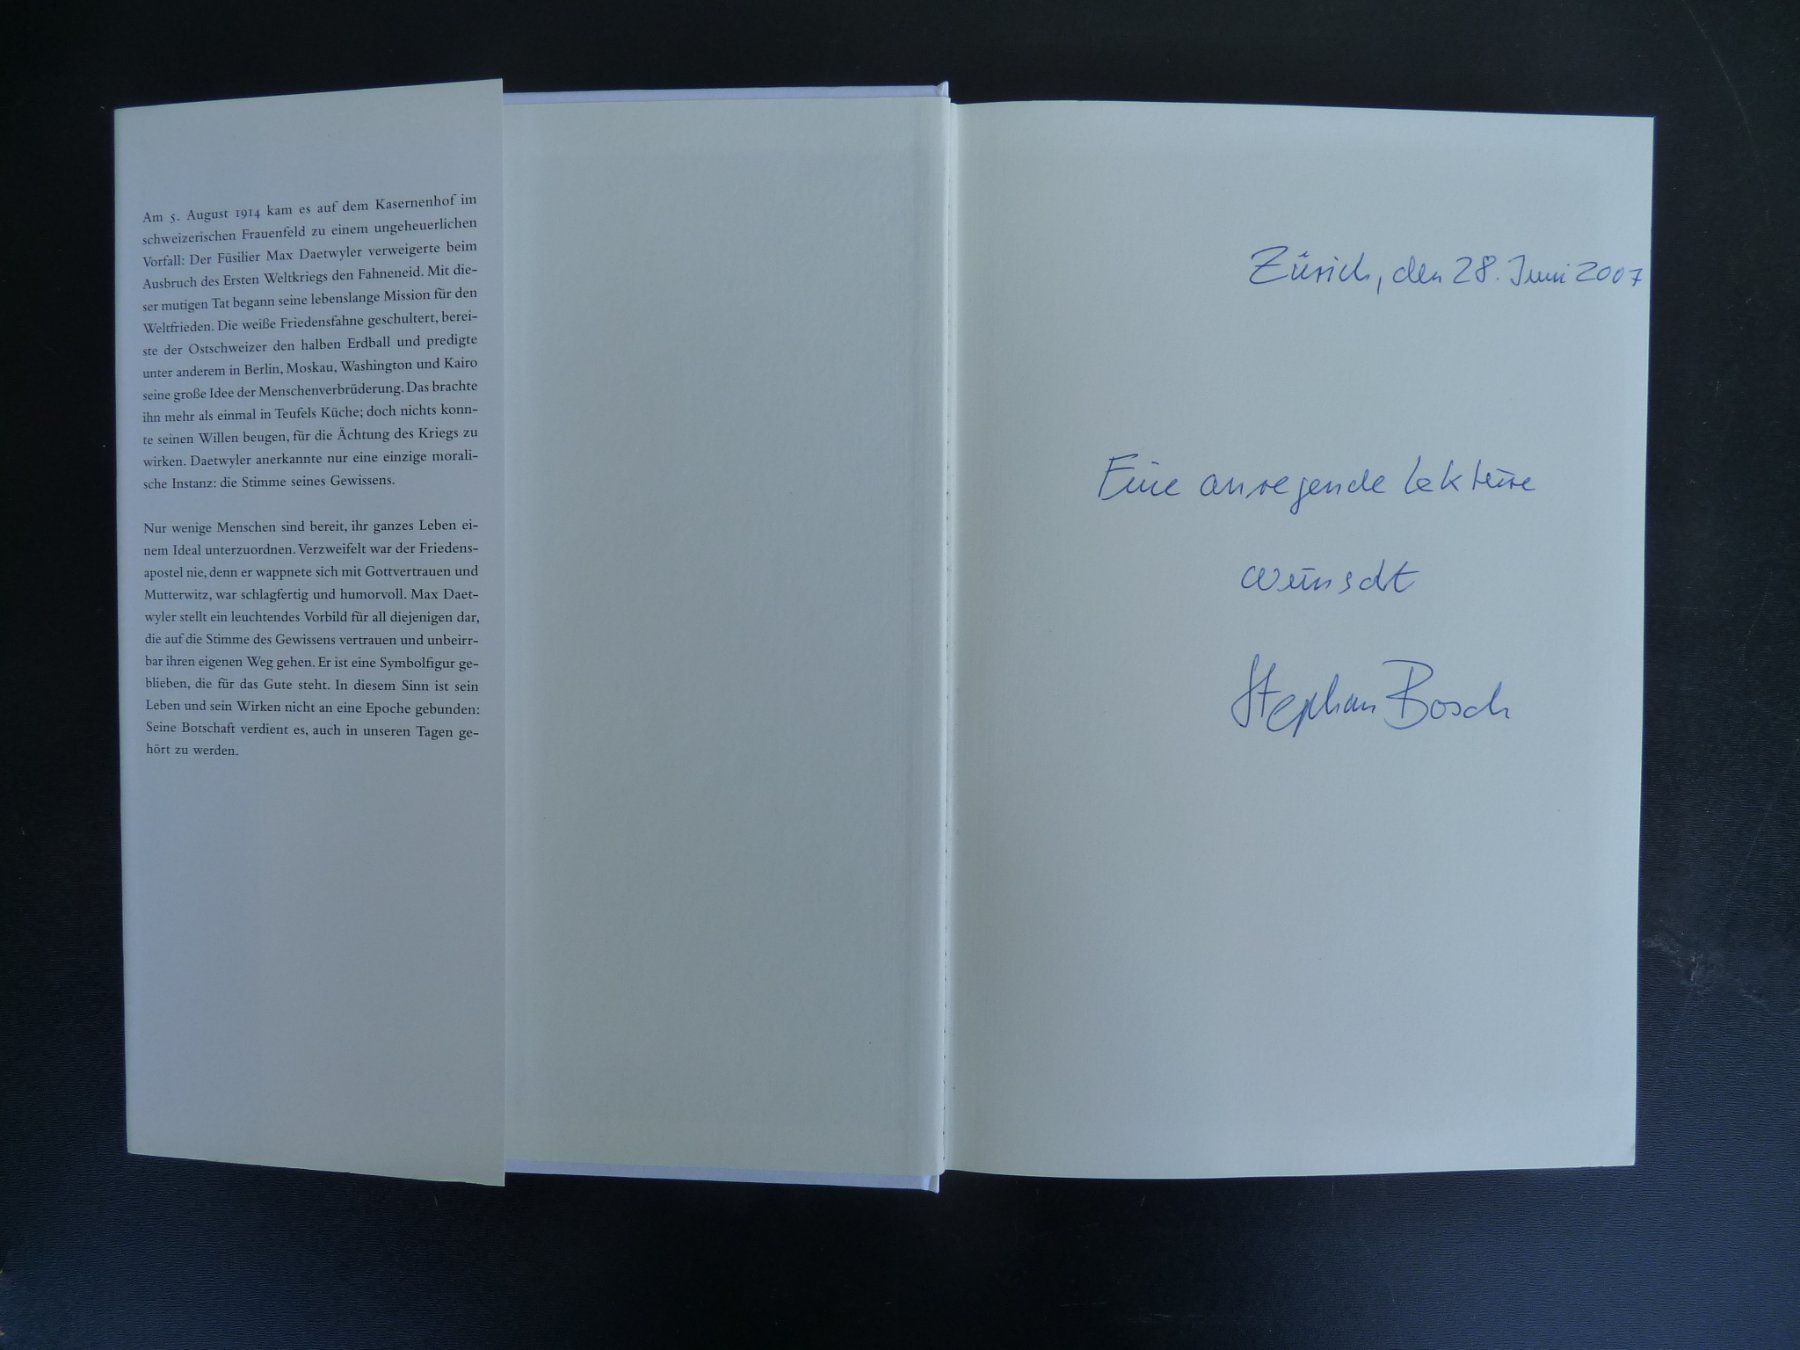 Am 5. August 1914 kam es auf dem Kasernenhof im
schweizerischen Frauenfeld zu einem ungeheuerlichen
Vorfall: Der Füsilier Max Daetwyler verweigerte beim
Ausbruch des Ersten Weltkriegs den Fahneneid. Mit die-
ser mutigen Tat begann seine lebenslange Mission für den
Weltfrieden. Die weiße Friedensfahne geschultert, berei-
ste der Ostschweizer den halben Erdball und predigte
unter anderem in Berlin, Moskau, Washington und Kairo
seine große Idee der Menschenverbrüderung. Das brachte
ihn mehr als einmal in Teufels Küche; doch nichts konn-
te seinen Willen beugen, für die Ächtung des Kriegs zu
wirken. Daetwyler anerkannte nur eine einzige morali-
sche Instanz: die Stimme seines Gewissens.
Nur wenige Menschen sind bereit, ihr ganzes Leben ei-
nem Ideal unterzuordnen. Verzweifelt war der Friedens-
apostel nie, denn er wappnete sich mit Gottvertrauen und
Mutterwitz, war schlagfertig und humorvoll. Max Daet-
wyler stellt ein leuchtendes Vorbild für all diejenigen dar,
die auf die Stimme des Gewissens vertrauen und unbeirr-
bar ihren eigenen Weg gehen. Er ist eine Symbolfigur ge-
blieben, die für das Gute steht. In diesem Sinn ist sein
Leben und sein Wirken nicht an eine Epoche gebunden:
Seine Botschaft verdient es, auch in unseren Tagen ge-
hört zu werden.
Zürich, den 28. Juni 2007
Eine anregende Lektüre
wünscht
Stephan Bosch